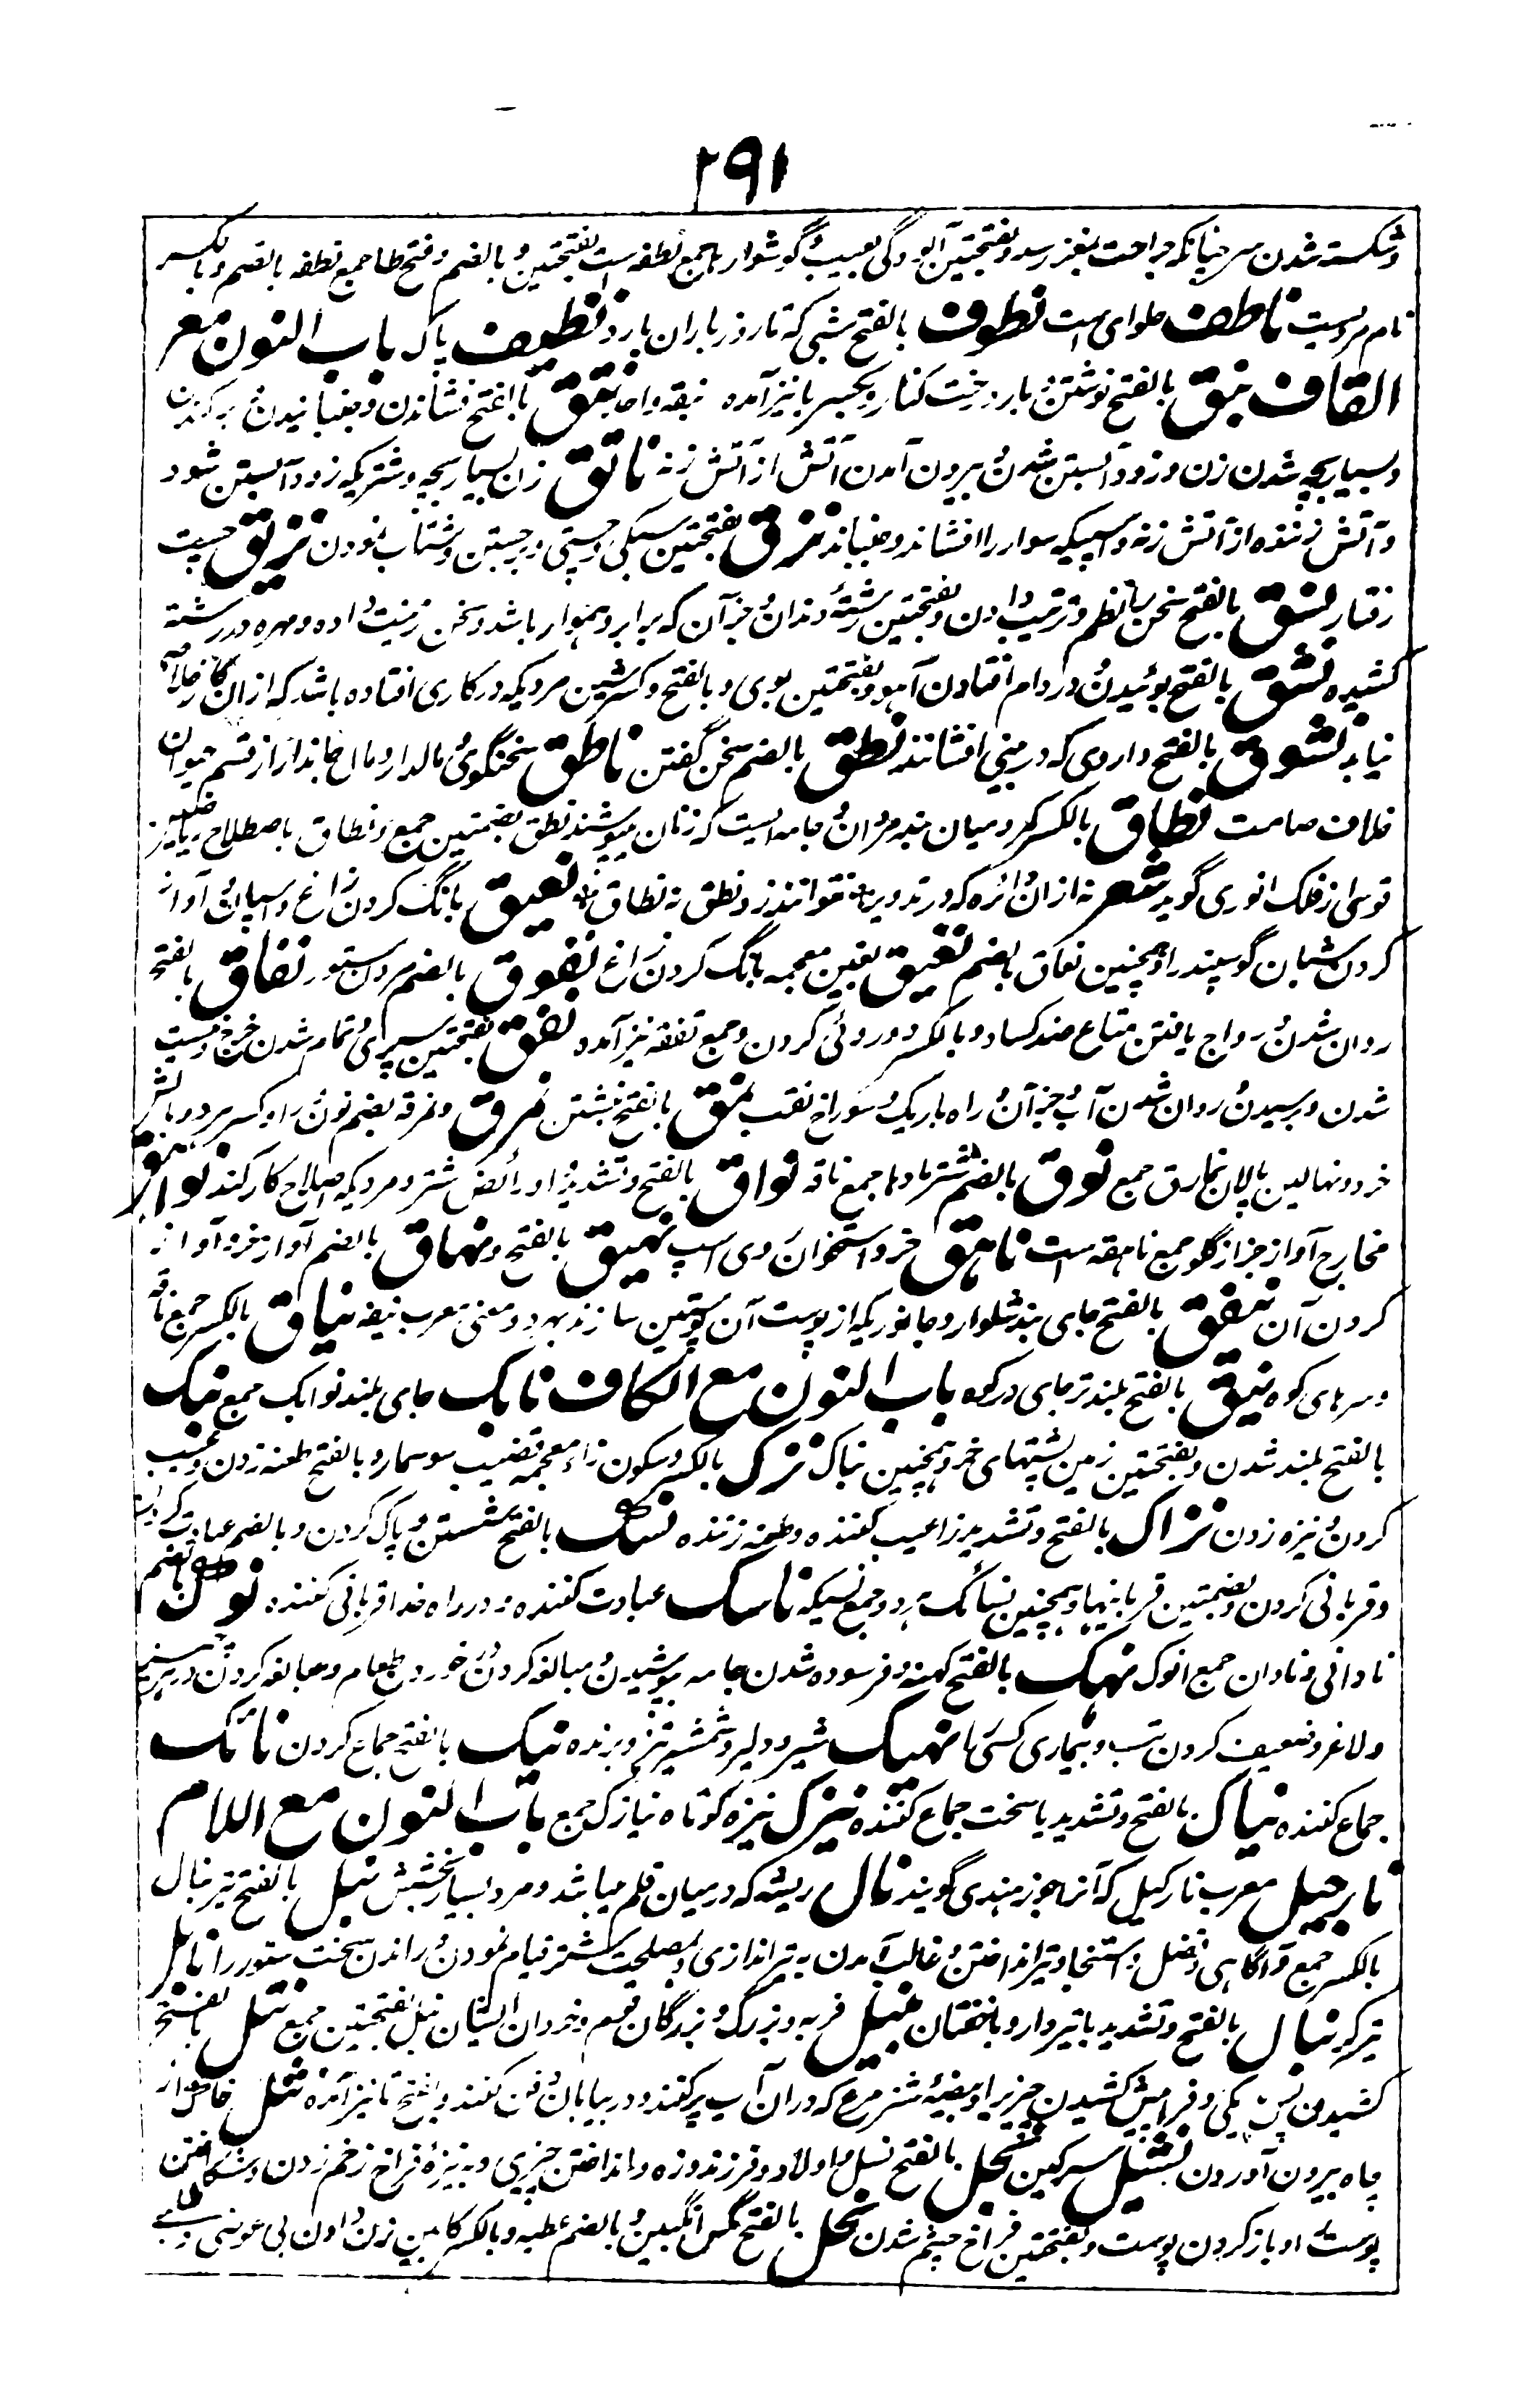 ۲۹۱
و شکسته شدن سر چنانکه جراحت بمغز رسد و بفتحتین آلودگی بعیب و گوشوارها جمع نطفه است بفتحتین و بالضم و فتح طا جمع نطفه بالضم و بالکسر
نام مردیست ناطف حلوای است نطوف بالفتح شبی که تا روز باران بارد نظیف پاک باب النون مع
القاف نبق بالفتح نوشتن و بار درخت کنار و بکسر با نیز آمده نبقه واحد نتق بالفتح فشاندن و جنبانیدن و برکندن
و بسیار بچه شدن زن و زود آبستن شدن و بیرون آمدن آتش از آتش زنه ناتق زن بسیار بچه و شتریکه زود آبستن شود
و آتش زننده از آتش زنه و اسپیکه سوار را افشاند و جنباند نزق بفتحتین سبکی و چستی و برجستن و شتاب نمودن نزیق چست
رفتار نسق بالفتح سخن را نظم و ترتیب دادن و بفتحتین رشتهٔ دندان و جز آن که برابر و هموار باشد و سخن ترتیب داده و مهره در رشته
کشیده نشق بالفتح بوئیدن و در دام افتادن آهو و بفتحتین بوی و بالفتح و کسر شین مردیکه در کاری افتاده باشد که از آن کار خلاص
نیابد نشوق بالفتح داروی که در بینی افشانند نطق بالضم سخن گفتن ناطق سخنگوی و مالدار و مال جاندار از قسم حیوان
خلاف صامت نطاق بالکسر کمر و میان بند مردان و جامه ایست که زنان میپوشند نطق بضمتین جمع و نطاق باصطلاح
قوسی از فلک انوری گوید شعر نه از ان دائره که در تدویر نتوانند زد و نطق نه نطاق نعیق بانگ کردن زاغ و آواز
کردن شبان گوسپند را و همچنین نعاق بالضم نغیق بغین معجمه بانگ کردن زاغ نفوق بالضم مردن ستور نفاق بالفتح
روان شدن و رواج یافتن متاع ضد کساد و بالکسر دوروئی کردن و جمع نفقه نیز آمده نفق بفتحتین سپری و تمام شدن خرج و نیست
شدن و رسیدن و روان شدن آب و جز آن و راه باریک و سوراخ نقب نمق بالفتح نبشتن نمرق و نمرقه بضم نون و را و بکسر هر دو بالش
خرد و نهالین پالان نمارق جمع نوق بالضم شتر ماده‌ها جمع ناقه نواق بالفتح و تشدید واو رائض شتر و مردیکه اصلاح کار کند نواهق
مخارج آواز خر از گلو جمع ناهقه است ناهق خر و استخوان روی اسپ نهیق بالفتح و نهاق بالضم آواز خر و آواز
کردن آن نیفق بالفتح جای بند شلوار و جانوریکه از پوست آن پوستین سازند بهر دو معنی معرب نیفه نیاق بالکسر جمع ناقه
و سرهای کوه نیق بالفتح بلندتر جای در کوه باب النون مع الکاف نابک جای بلند نوابک جمع نبک
بالفتح بلند شدن و بفتحتین زمین پشتهای خرد و همچنین نباک نزک بالکسر و سکون زاء معجمه قضیب سوسمار و بالفتح طعنه زدن و عیب
کردن و نیزه زدن نزاک بالفتح و تشدید زا عیب کننده و طعنه زننده نسک بالفتح شستن و پاک کردن و بالضم عبادت کردن
و قربانی کردن و بضمتین قربانیها و همچنین نسائک هر دو جمع نسیکه ناسک عبادت کننده و در راه خدا قربانی کننده نوک بالضم
نادانی و نادان جمع انوک نهک بالفتح کهنه و فرسوده شدن جامه پوشیدن و مبالغه کردن در خوردن طعام و مبالغه کردن در
و لاغر و ضعیف کردن تب و بیماری کسی را نهیک شیر و دلیر و شمشیر تیز و برنده نیک بالفتح جماع کردن نائک
جماع کننده نیاک بالفتح و تشدید یا سخت جماع کننده نیزک نیزه کوتاه نیازک جمع باب النون مع اللام
نارجیل معرب نارکیل که آنرا جوز هندی گویند نال ریشه که در میان قلم میباشد و مرد بسیار بخشش نبل بالفتح تیر نبال
بالکسر جمع و آگاهی و فضل و استنجا و تیر انداختن و غالب آمدن به تیراندازی و بمصلحت شتر قیام نمودن و راندن سخت ستور را نابل
تیرگر نبال بالفتح و تشدید با تیردار و بافتان نبیل فربه و بزرگ و بزرگان قوم و خردان ایشان نبل بفتحتین جمع نتل بالفتح
کشیدن پس یکی و فراپیش کشیدن چیزیرا و بیضهٔ شترمرغ که در آن آب پر کنند و در بیابان دفن کنند و بفتح تا نیز آمده نثل خاک از
چاه بیرون آوردن نثیل سرگین نجل بالفتح نسل و اولاد و فرزند و زه و انداختن چیزی و به نیزه فراخ زخم زدن و شگافتن
پوست و باز کردن پوست و بفتحتین فراخ چشم شدن نحل بالفتح مگس انگبین و بالضم عطیه و بالکسر کابین زن دادن بی عوضی